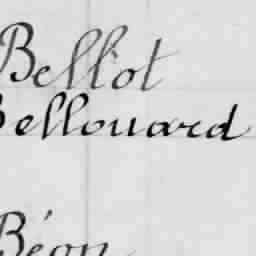 Bellot
Bellouard
Béon